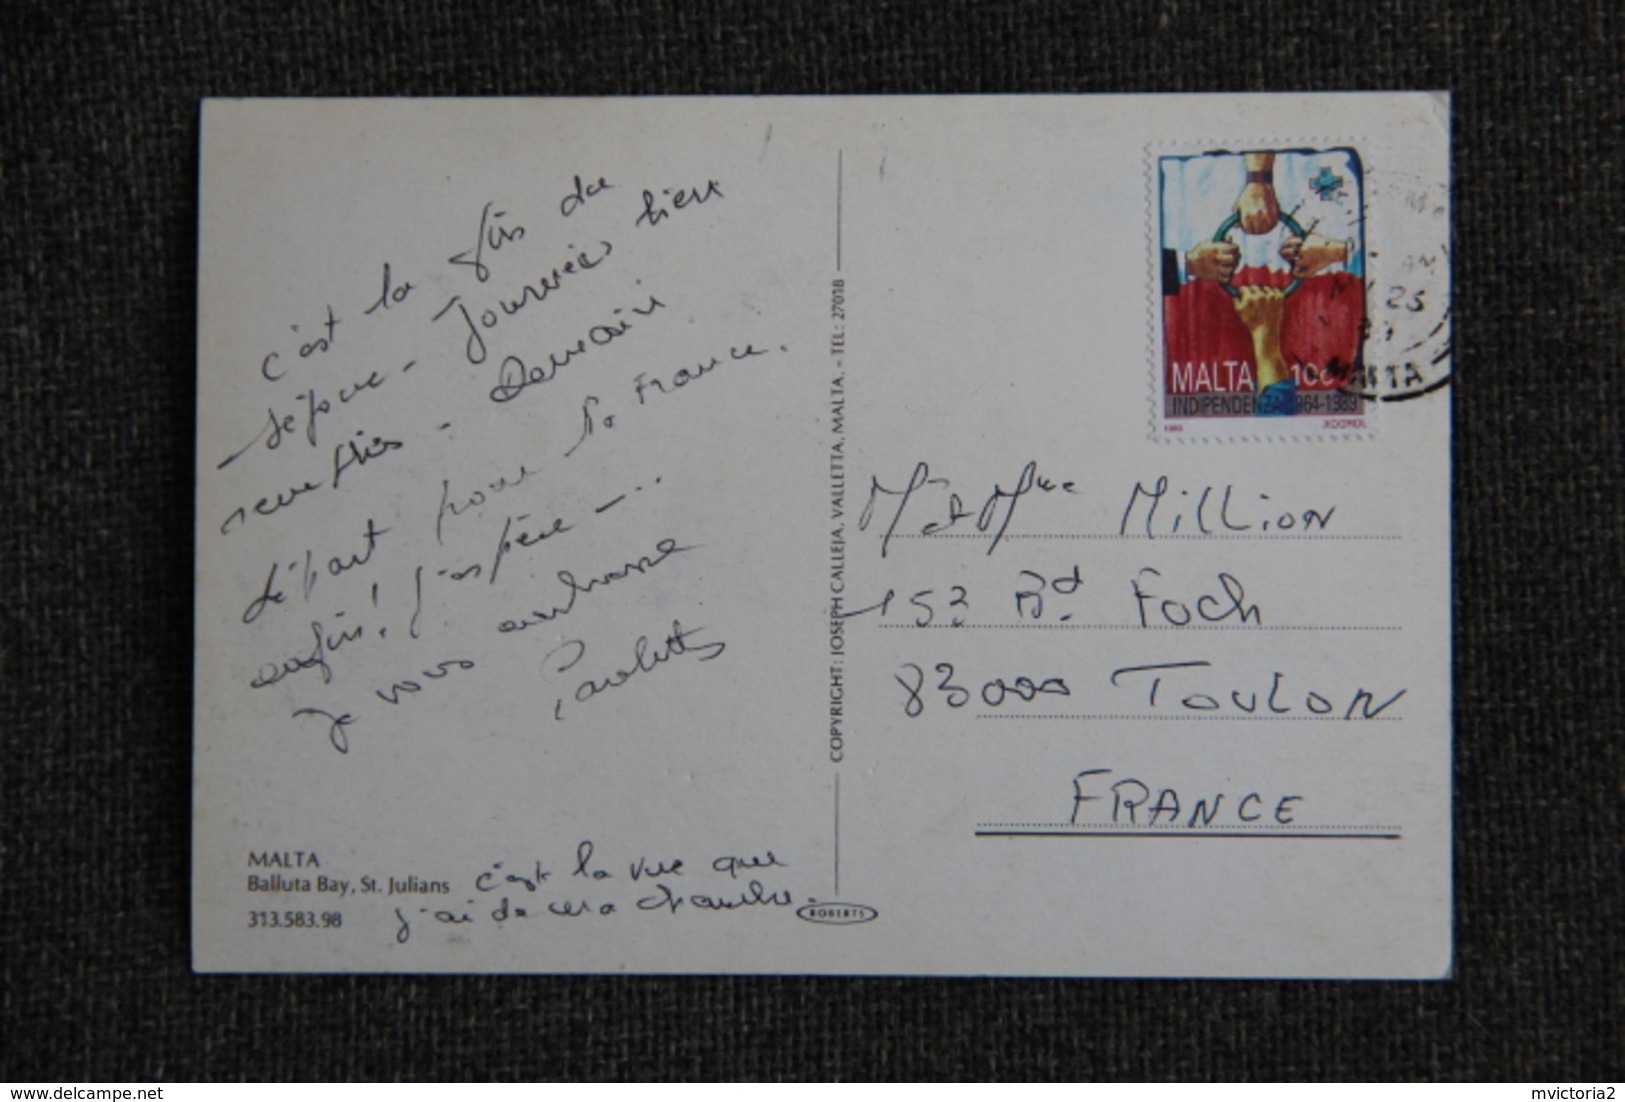 c'est la fin du
séjour - Journées bien
remplies - Demain
départ pour la France.
enfin! j'espère - ...
je vous embrasse
Paulette
MALTA
Balluta Bay, St. Julians
313.583.98
c'est la vue que
j'ai de ma chambre.
COPYRIGHT: JOSEPH CALLEJA, VALLETTA, MALTA. - TEL: 27018
ROBERTS
MALTA 10c
INDIPENDENZA 1964-1989
1989
AM
25
MALTA
Mr et Mme Million
153 Bd. Foch
83000 Toulon
FRANCE
mvictoria2